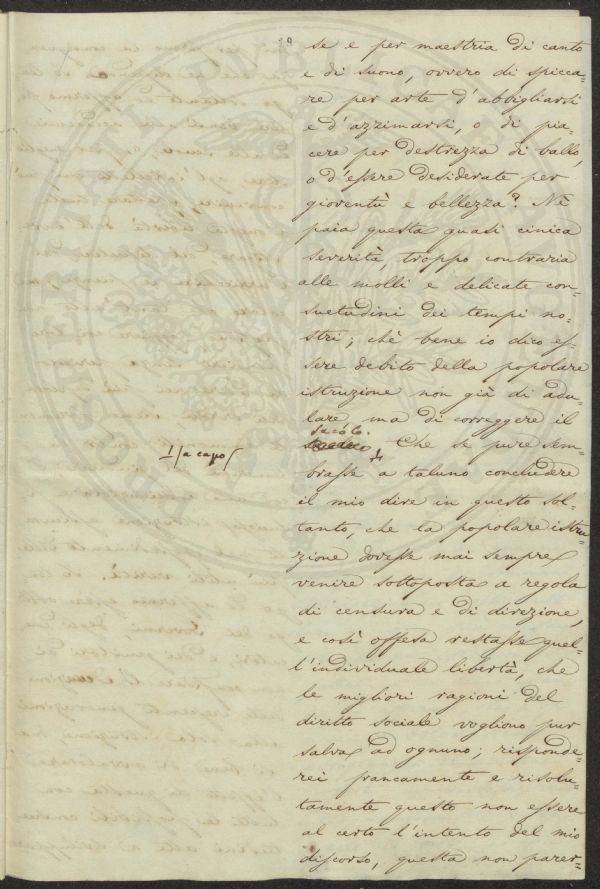 se e per maestria di canto
e di suono, ovvero di spicca=
re per arte d'abbigliarsi
e d'azzimarsi, o di pia=
cere per destrezza di ballo,
o d'essere desiderate per
gioventù e bellezza? Nè
paia questa quasi cinica
severità, troppo contraria
alle molli e delicate con=
suetudini dei tempi no=
stri; chè bene io dico es=
sere debito della popolare
istruzione non già di adu=
lare, ma di correggere il
secolo.
1/a capo
Che se pure sem=
brasse a taluno concludere
il mio dire in questo sol=
tanto, che la popolare istru=
zione dovesse mai sempre
venire sottoposta a regola
di censura e di direzione,
e così offesa restasse quel=
l'individuale libertà, che
le migliori ragioni del
diritto sociale vogliono pur
salva ad ognuno; risponde=
rei francamente e risolu=
tamente questo non essere
al certo l'intento del mio
discorso, questa non parer=